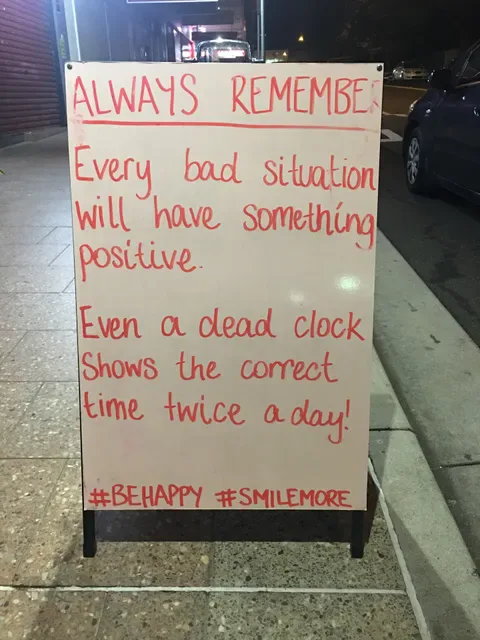 ALWAYS REMEMBER
Every bad situation
will have something
positive.
Even a dead clock
Shows the correct
time twice a day!
#BEHAPPY #SMILEMORE